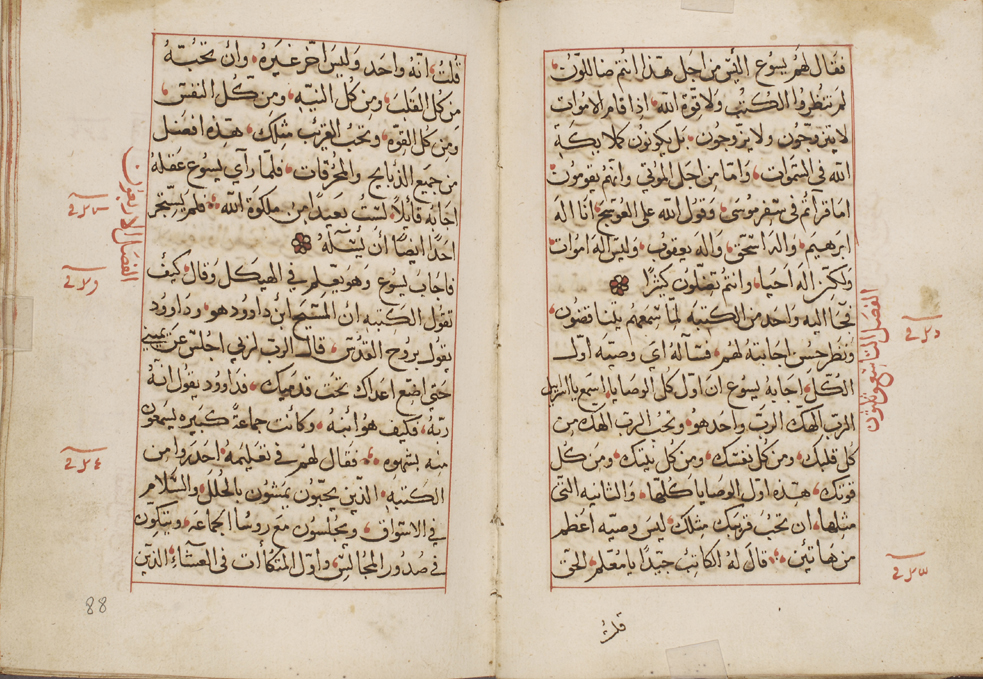 فقال لهم يسوع اليس من اجل هذا انتم ضالون
لم تنظروا الكتب ولا قوة الله اذا قام الاموات
لا يتزوجون ولا يزوجون بل يكونون كملايكة
الله في السموات واما من اجل الموتي وانهم يقومون
اما قراتم في سفر موسى وقول الله على العوسج انا اله
ابرهيم واله اسحق واله يعقوب وليس اله اموات
ولكن اله احيا وانتم تضلون كثيرًا
فجا اليه واحد من الكتبة لما سمعهم يتناقضون
ونظر حسن اجابته لهم فسأله اي وصيه اول
الكل اجابه يسوع ان اول كل الوصايا اسمع يا اسرايل
الرب الهك الرب واحد هو وتحب الرب الهك من
كل قلبك ومن كل نفسك ومن كل نيتك ومن كل
قوتك هذه اول الوصايا كلها والثانيه التي
مثلها ان تحب قريبك مثلك ليس وصيه اعظم
من هاتين قال له الكاتب جيدًا يا معلم الحق
الفصل التاسع وثلثون
قلت
قلت انه واحد وليس اخر غيره وان تحبه
من كل القلب ومن كل النيه ومن كل النفس
ومن كل القوه وتحب القريب مثلك هذه افضل
من جميع الذبايح والمحرقات فلما رأي يسوع عقله
اجابه قائلًا لست بعيدًا من ملكوة الله فلم يستجر
احدًا ايضًا أن يسئله
فاجاب يسوع وهو يعلم في الهيكل وقال كيف
تقول الكتبه ان المسيح ابن داوود هو وداوود
يقول بروح القدس قال الرب لربي اجلس عن يميني
حتى اضع اعداك تحت قدميك فداوود يقول انه
ربه فكيف هو ابنه وكانت جماعة كبيره يسمعون
منه بشهوه فقال لهم في تعليمه احذروا من
الكتبه الذين يحبون يمشون بالحلل والسلام
في الاسواق ويجلسون مع روسا الجماعه ويتكون
في صدور المجالس واول المتكأات في العشاء الذين
الفصل الاربعون
88